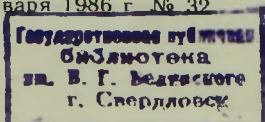 варя 1986 г № 32
Государственная публичная
библиотека
им. В. Г. Белинского
г. Свердловск